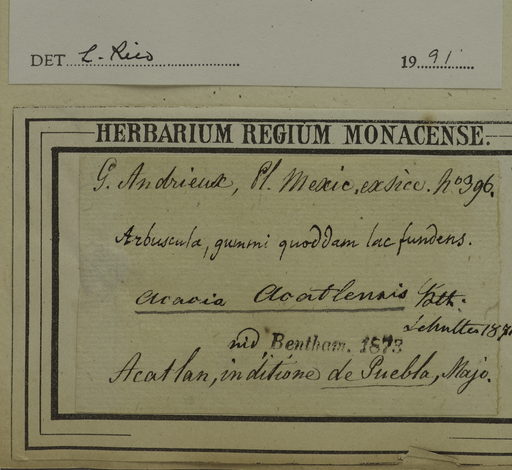 DET. L. Rico 1991
HERBARIUM REGIUM MONACENSE.
G. Andrieux, Pl. Mexic. exsicc. No 396.
Arbuscula, gummi quoddam lac fundens.
Acacia Acatlensis Bth.
Schultes 187
vid. Bentham. 1873
Acatlan, in ditione de Puebla, Majo.